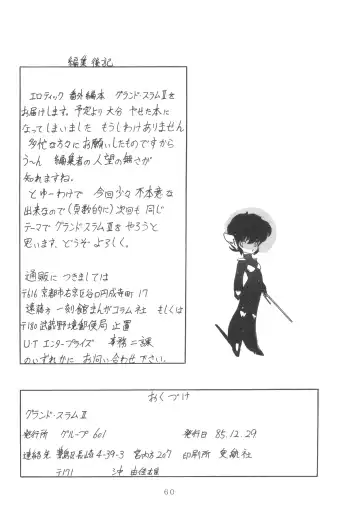 編集後記
エロティック 番外編本 グランド・スラムⅡを
お届けします。予定より 大分 やせた本に
なってしまいました もうしわけありません
多忙な方々にお願いしたものですから
う〜ん 編集者の人望の無さが
知れますね。
とゆーわけで 今回少々 不本意な
出来なので(頁数的に)次回も 同じ
テーマで グランド・スラムⅢを やろうと
思います、どうぞ よろしく。
通販に つきましては
〒616 京都市右京区谷口円成寺町 17
遠藤方 一刻館まんがコラム社 もしくは
〒180 武蔵野境郵便局 止置
U・T エンタープライズ 事務二課
のいずれかに お問い合わせ下さい。
おくづけ
グランド・スラムⅡ
発行所 グループ 601 発行日 85.12.29
連絡先 豊島区長崎 4-39-3 宮内方 207 印刷所 愛融社
〒171 沖 由佳雄
60